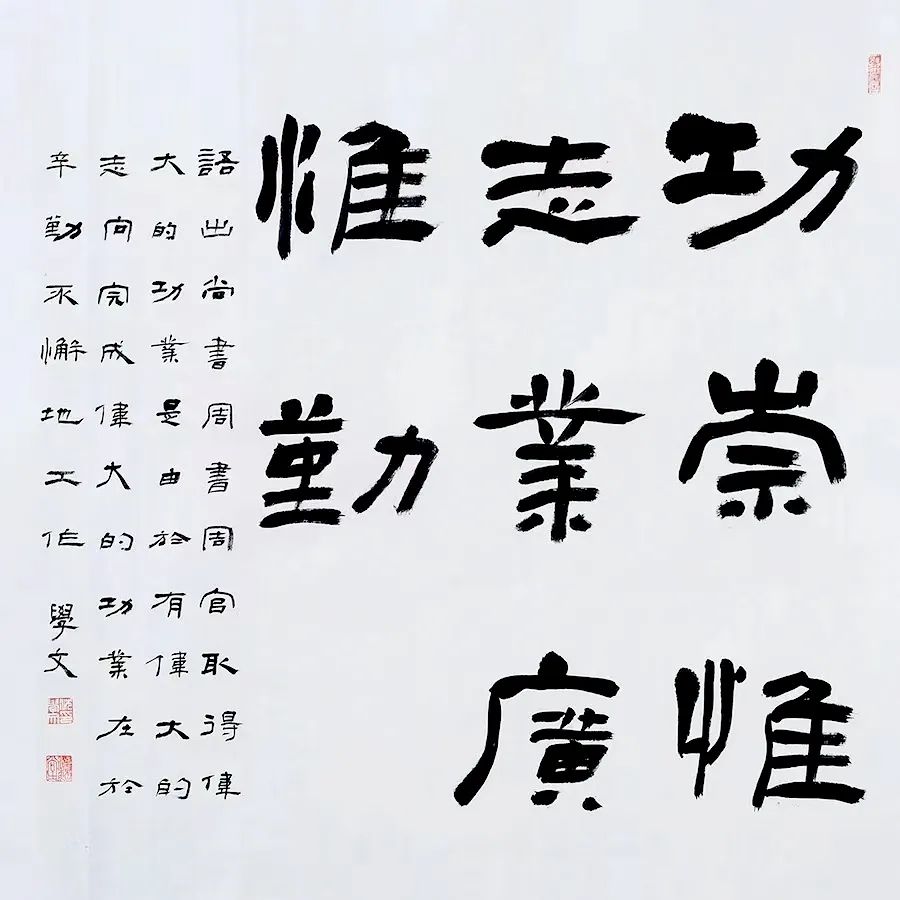 功崇惟
志業廣
惟勤
語出尚書周書周官取得偉
大的功業是由於有偉大的
志向完成偉大的功業在於
辛勤不懈地工作 學文